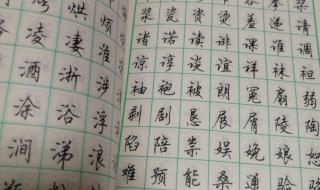 烘 烦
凌 凄 淮
酒 浙 涉
涂 浴 浮
涧 涕 浪
浆 瓷 资 烫 差 递
诸 诺 读 诽 课 谁 调
谅 谆 谈 谊 祥 袜 袒
袖 袍 被 朗 冤 扇 弱
剥 剧 恳 展 屑 陵 陶
陷 陪 祟 娱 娩 娘 恕
难 预 能 桑 通 验